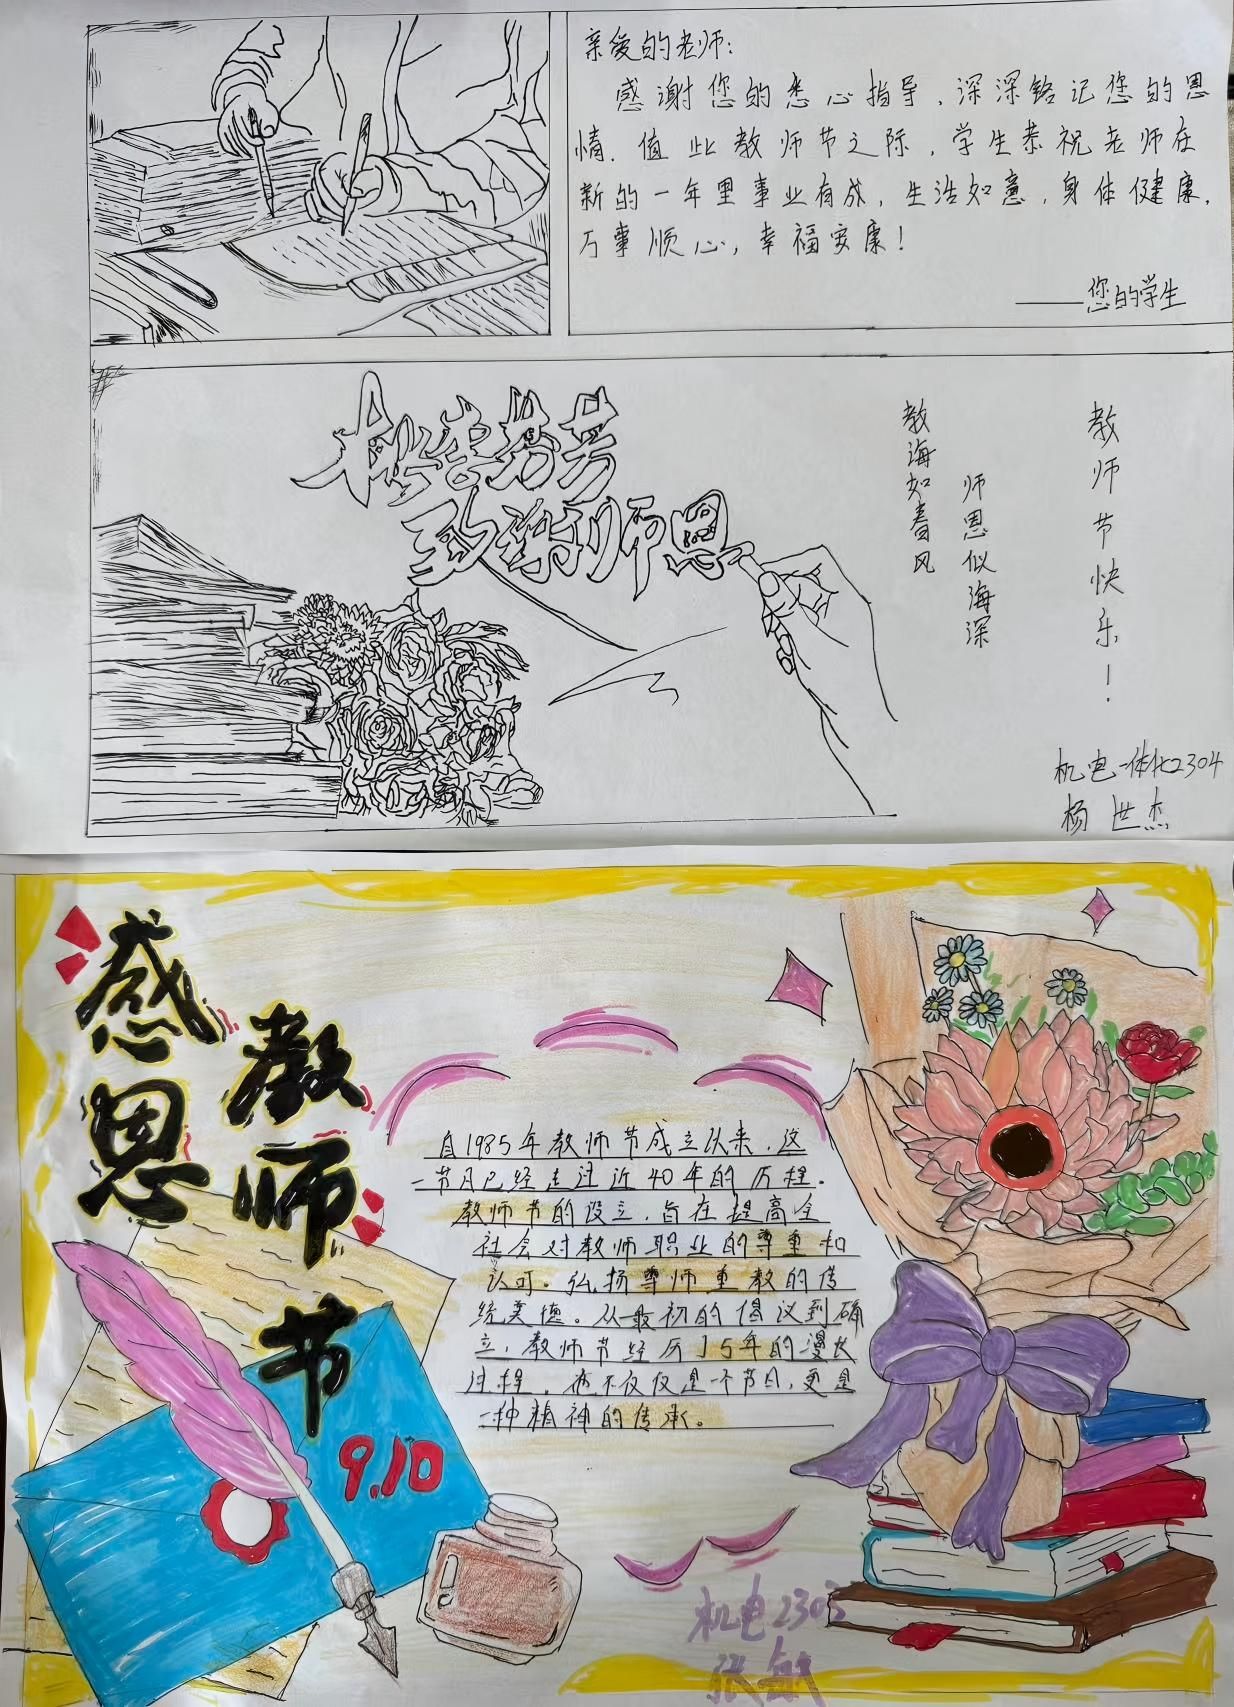 亲爱的老师：
感谢您的悉心指导，深深铭记您的恩
情.值此教师节之际，学生恭祝老师在
新的一年里事业有成，生活如意，身体健康，
万事顺心，幸福安康！
——您的学生
桃李芬芳
致谢师恩
教海如春风
师恩似海深
教师节快乐！
机电一体化2304
杨世杰
感恩
教师节
9.10
自1985年教师节成立以来，这
一节日已经走过近40年的历程。
教师节的设立，旨在提高全
社会对教师职业的尊重和
认可。弘扬尊师重教的传
统美德。从最初的倡议到确
立，教师节经历了5年的漫长
过程，他不仅仅是一个节日，更是
一种精神的传承。
机电2303
张敏